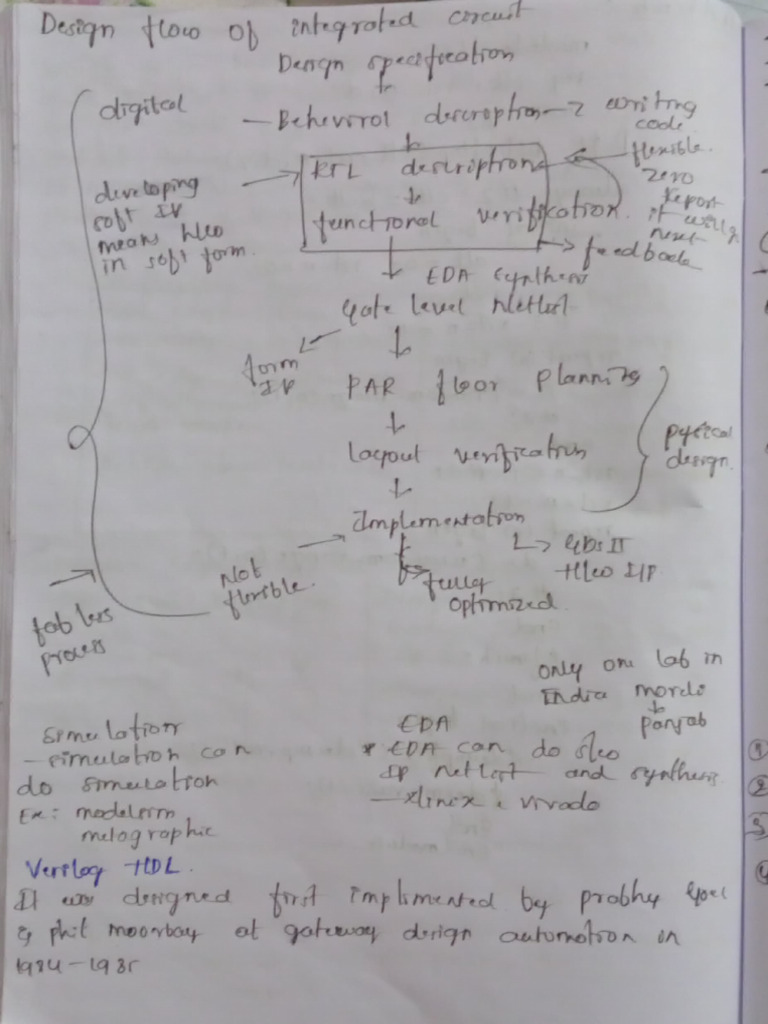 Design flow of integrated circuit
Design specification
digital
- Behaviral description → writing
code
RTL description
flexible.
zero
Report
it will
reset
developing
soft IP
means
in soft form.
functional verification.
feedback
EDA synthesis
Gate level Netlist
form
IP
PAR floor planning
Layout verification
pysical
design.
Implementation
GDS II
I/P
Not
flexible.
fully
optimized.
fab less
process
only one lab in
India
panjab
Simulation
- simulation can
do simulation
Ex:
EDA
* EDA can do
IP netlist and synthesis
- xlinex : vivado
Verilog HDL.
It was designed first implimented by prabhu Goel
& phil moorbay at gateway design automation in
1984-1985